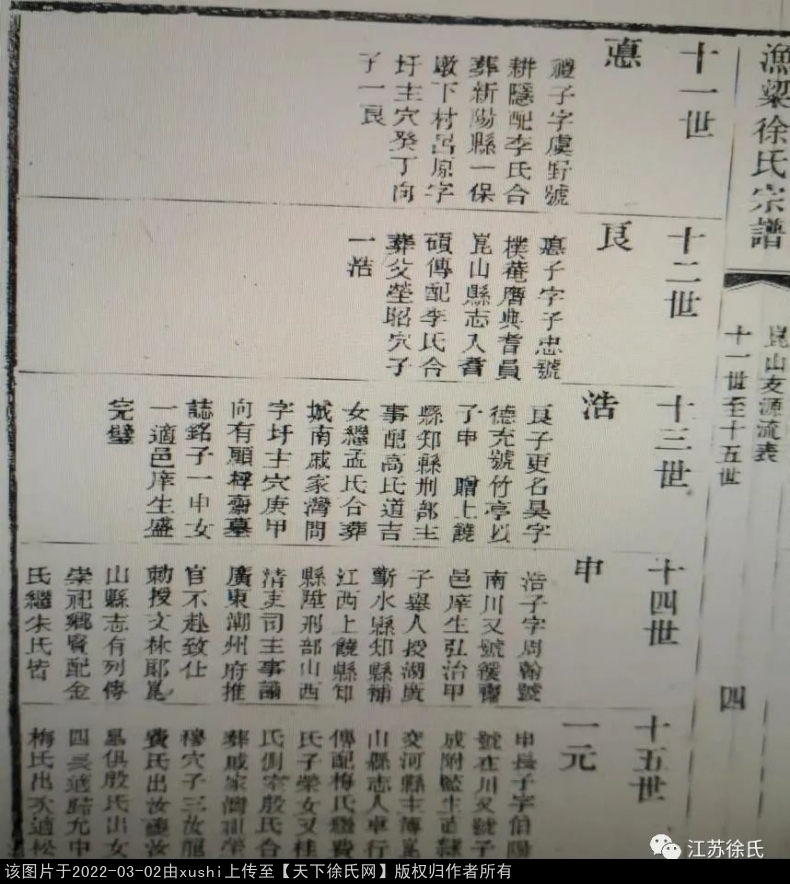 漁梁徐氏宗譜
崑山支源流表
十一世至十五世
四
十一世
悳
禮子字虞野號
耕隱配李氏合
葬新陽縣一保
墩下村呂原字
圩主穴癸丁向
子一艮
十二世
艮
悳子字子忠號
樸菴膺典耆員
崑山縣志入耆
碩傳配李氏合
葬父塋昭穴子
一浩
十三世
浩
艮子更名昊字
德充號竹亭以
子申 贈上饒
縣知縣刑部主
事配高氏道吉
女繼孟氏合葬
城南戚家灣問
字圩主穴庚甲
向有顧桴齋墓
誌銘子一申女
一適邑庠生盛
完璧
十四世
申
浩子字周翰號
南川又號 齋
邑庠生弘治甲
子舉人授湖廣
蘄水縣知縣補
江西上饒縣知
縣陞刑部山西
清吏司主事謫
廣東潮州府推
官不赴致仕
勅授文林郎崑
山縣志有列傳
崇祀鄉賢配金
氏繼朱氏皆
十五世
一元
申長子字伯陽
號在川又號子
成附監生直隸
交河縣主簿崑
山縣志人卓行
傳配梅氏繼費
氏子榮女又桂
氏側室殷氏合
葬戚家灣祖塋
穆穴子三汝龍
費氏出汝 汝
俱殷氏出女
四長適歸允中
梅氏出次適松
江苏徐氏
该图片于2022-03-02由xushi上传至【天下徐氏网】版权归作者所有